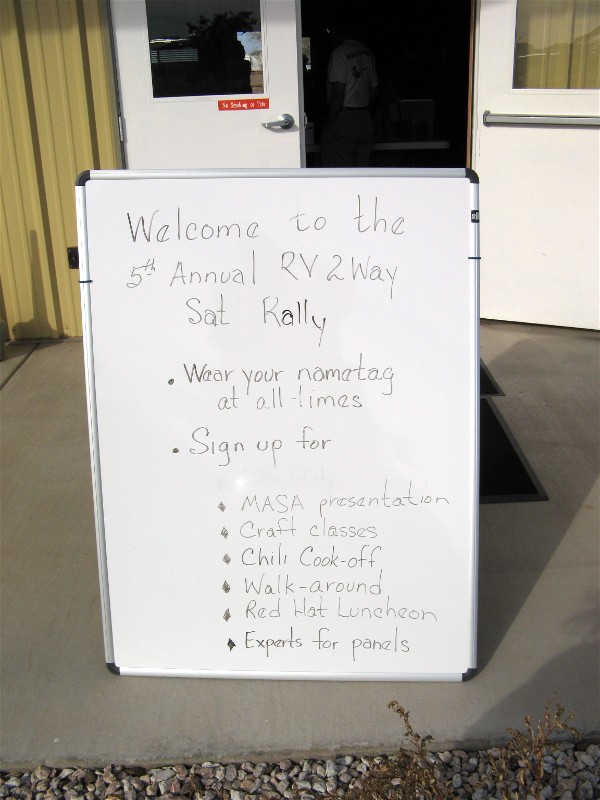 No Smoking or Pets
Welcome to the
5th Annual RV 2Way
Sat Rally
• Wear your nametag
at all times
• Sign up for
♦ MASA presentation
♦ Craft classes
♦ Chili Cook-off
♦ Walk-around
♦ Red Hat Luncheon
♦ Experts for panels